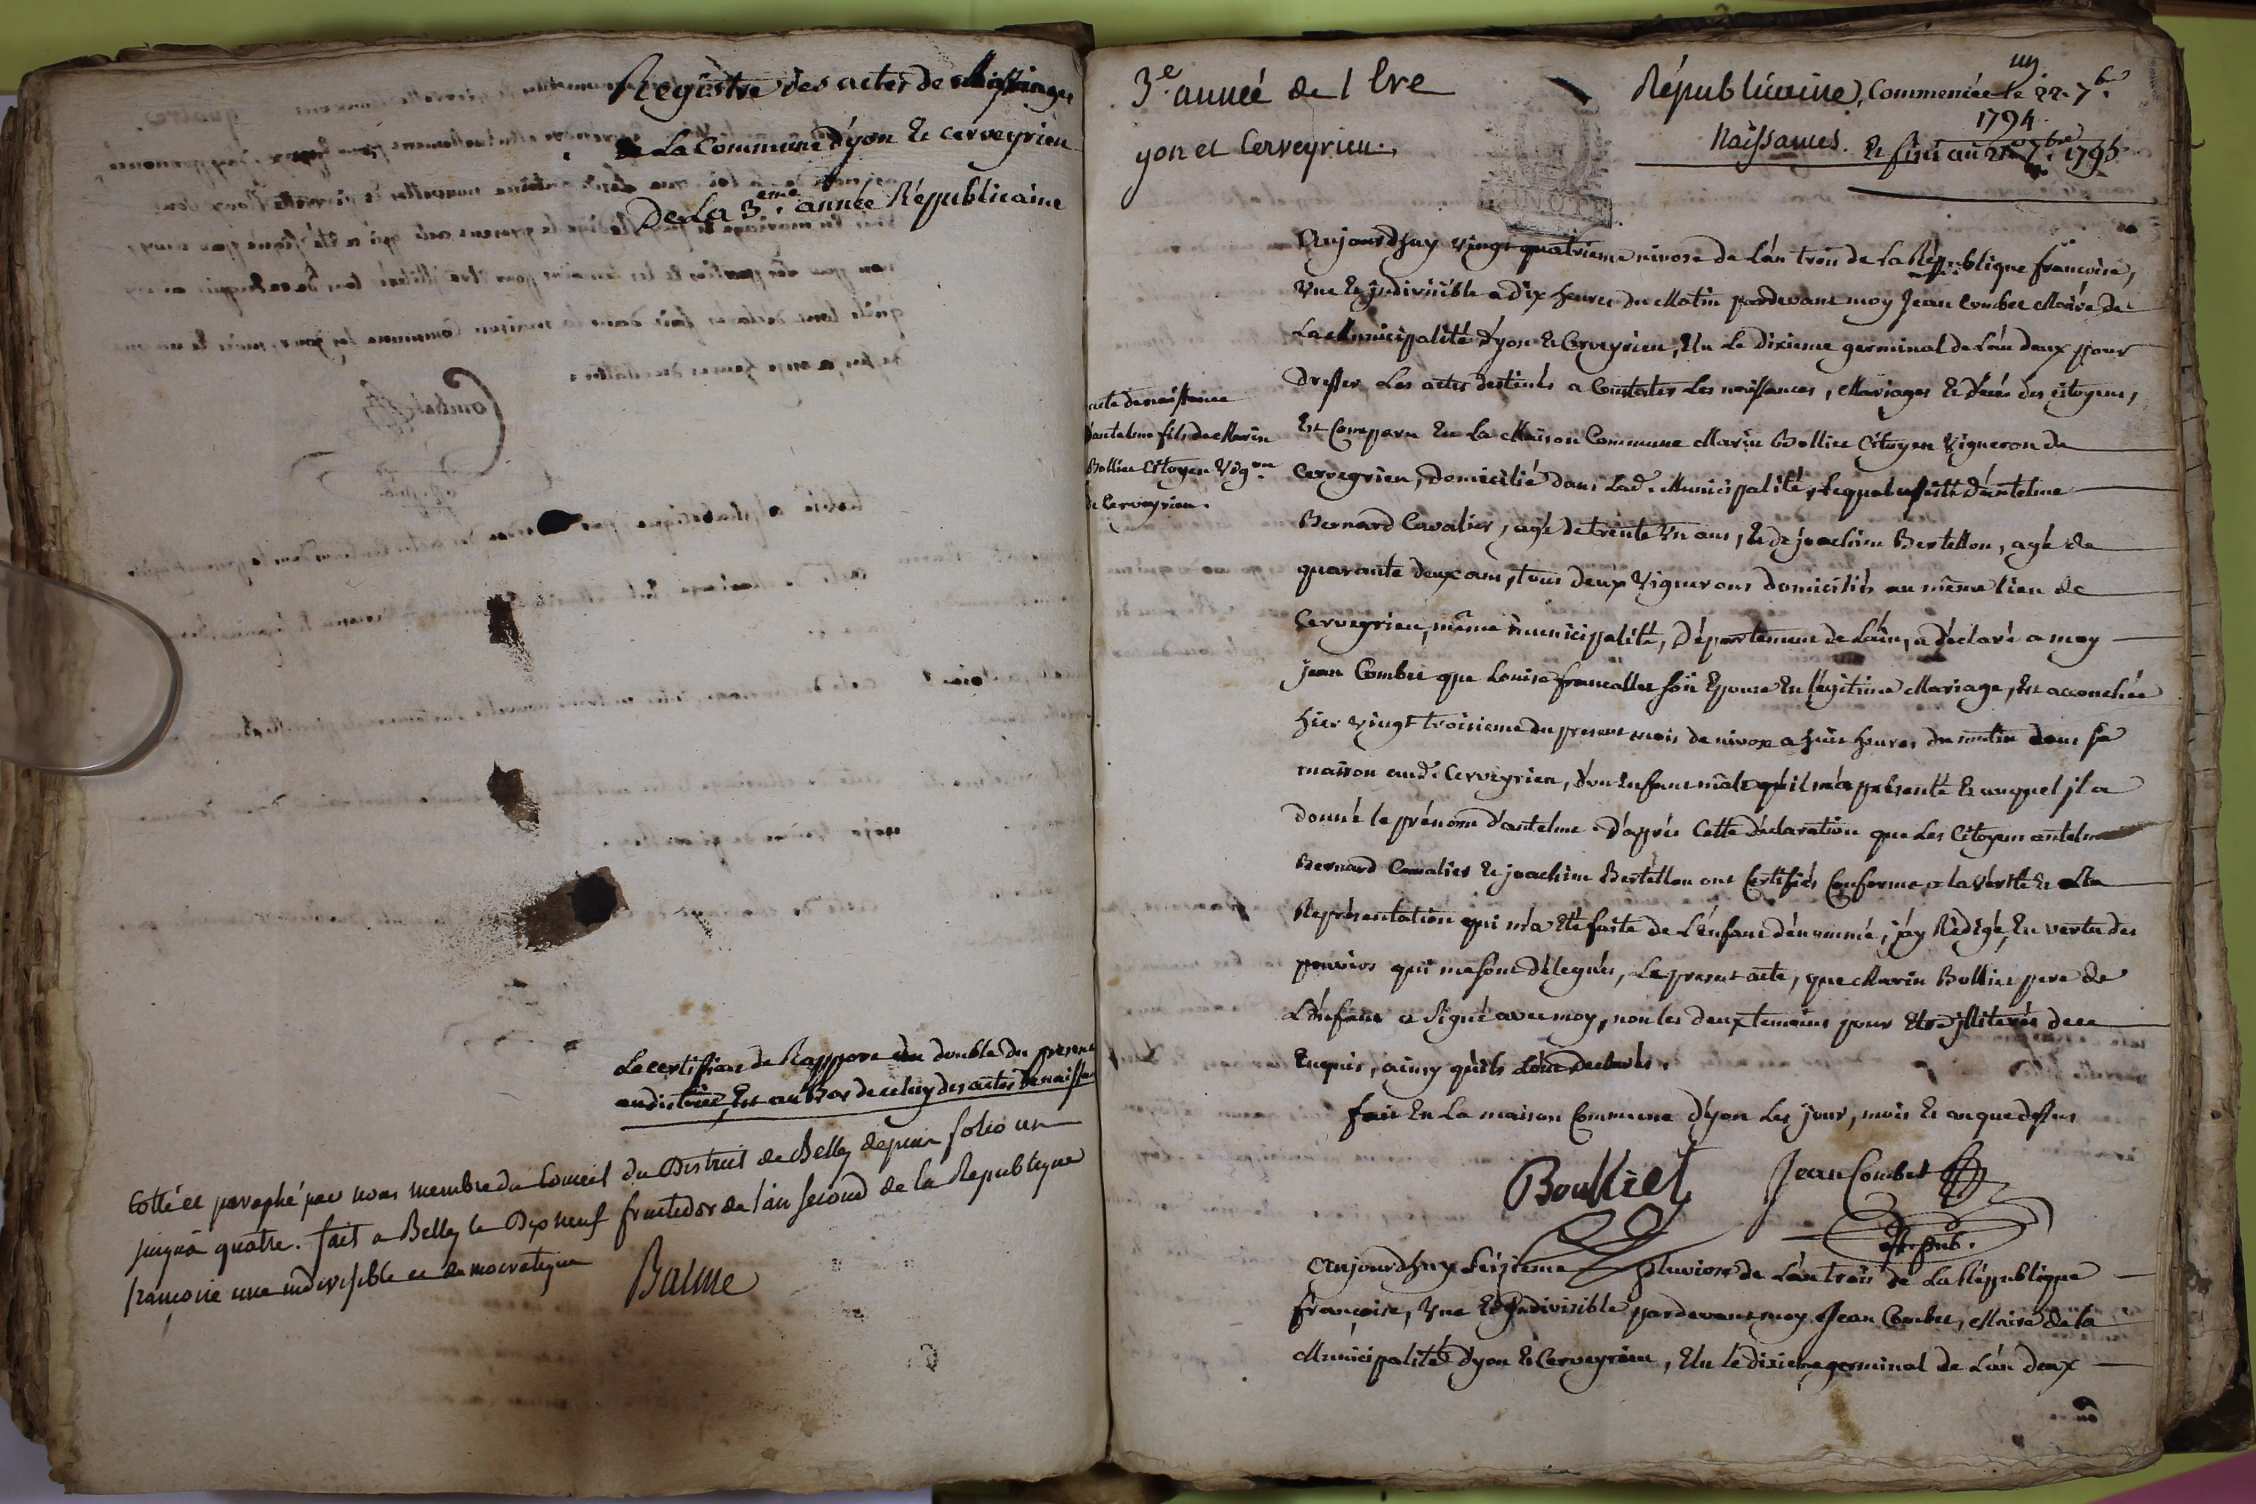 Registre des actes de Naissances
de La Commune d'yon Et cerveyrieu
De La 3.eme année Républicaine
Le certificat de Rapport du double du present
au district, Est au Bas de celuy des actes de naissan
Cotté et paraphé par nous membre du Conseil du District de Belley depuis folio un
jusqua quatre. fait a Belley le Dix neuf fructidor de l'an second de la Republique
françoise une indivisible et democratique
Baime
3.e année de l Ere Républicaine, Commencée le 22. 7.bre
1794.
yon et Cerveyrieu. Naissances. Et fini au 21. 7.bre 1795
acte de naissance
d'antelme fils de Marin
Bolliet Citoyen Vig.on
de Cerveyrieu.
Aujourdhuy vingt quatrieme nivose de L'an trois de La République françoise,
Une Et jndivisible a Dix heures du Matin pardevant moy Jean Combet Maire de
La Municipalité d'yon Et Cerveyrieu, Elu Le dixieme germinal de L'an deux pour
dresser Les actes destinés a Constater Les naissances, Mariages Et décés des citoyens,
Est Comparu En La Maison Commune Marin Bolliet Citoyen Vigneron de
Cerveyrieu, domicilié dans Lad.e Municipalité, Lequel assisté d'antelme
Bernard Cavalier, agé de trente Un ans, Et de joachim Bertellon, agé de
quarante deux ans, tous deux Vignerons domiciliés au même lieu de
Cerveyrieu, même municipalité, Département de L'ain, a déclaré a moy
Jean Combet que Louise francallet son Epouse En légitime Mariage, Est accouchée
hier vingt troisieme du present mois de nivose a huit heures du matin dans sa
maison aud.t Cerveyrieu, d'un Enfant mâle qu'il m'a présenté Et auquel jl a
donné le prénom d'antelme. d'après Cette déclaration que Les Citoyens antelme
Bernard Cavalier Et joachim Bertellon ont Certifiés Conforme a la vérité Et a La
Représentation qui m'a Eté faite de L'Enfant dénommé, j'ay Rédigé, En vertu des
pouvoirs qui me sont délegués, Le present acte, que Marin Bolliet pere de
L'Enfant a signé avec moy, non les deux temoins pour Etre jlliterés de ce
Enquis, ainsy qu'ils L'ont declarés.
fait En La maison Commune d'yon Les jour, mois Et an que dessus
Boulliet Jean Combet
off. pub.
Aujourdhuy seizieme pluviose de L'an trois de La République
françoise, Une Et jndivisible pardevant moy Jean Combet, Maire de la
Municipalité d'yon Et Cerveyrieu, Elu le dixieme germinal de L'an deux
pour